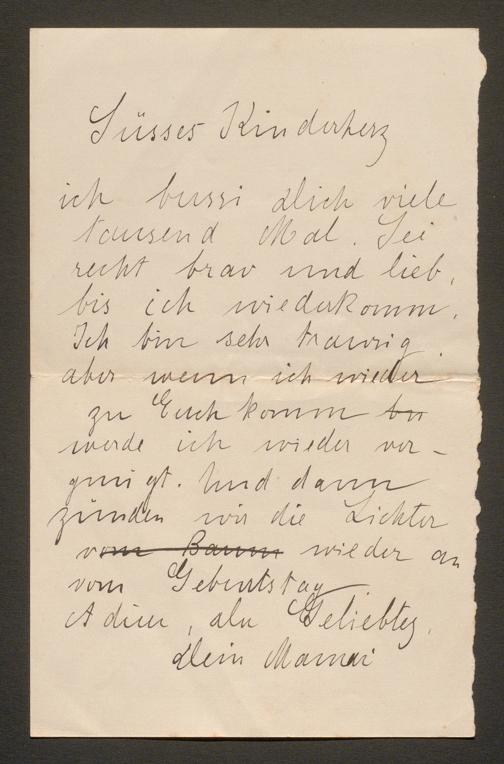 Süsses Kinderherz
ich bussi dich viele
tausend Mal. Sei
recht brav und lieb,
bis ich wiederkomm.
Ich bin sehr traurig
aber wenn ich wieder
zu Euch komm
werde ich wieder ver-
gnügt. Und dann
zünden wir die Lichter
vom Baum wieder an
vom Geburtstag
Adieu, du Geliebtes,
Dein Mamai